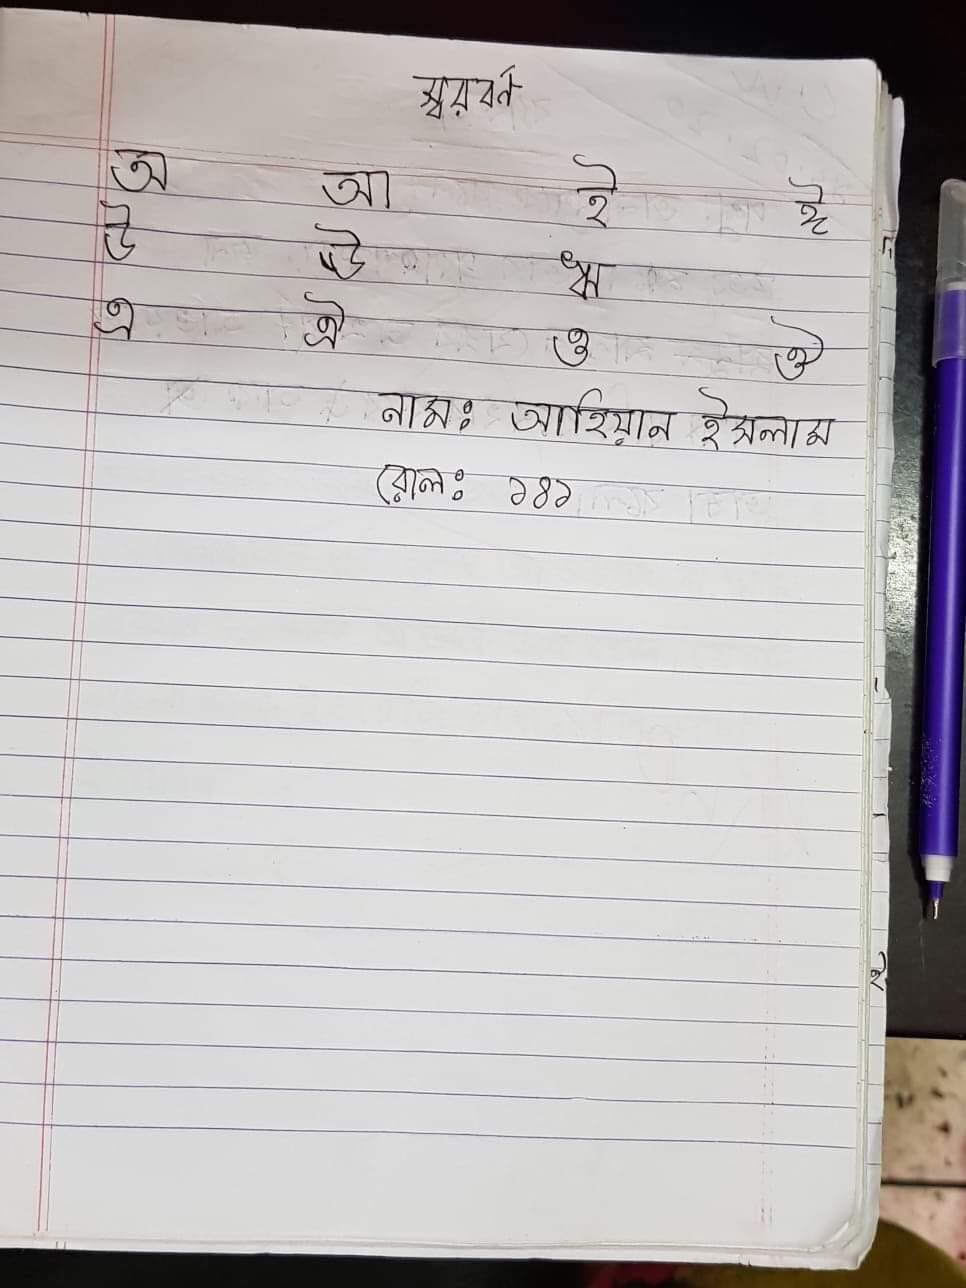 স্বরবর্ণ
অ আ ই ঈ
উ ঊ ঋ
এ ঐ ও ঔ
নামঃ আহিয়ান ইসলাম
রোলঃ ১৪১